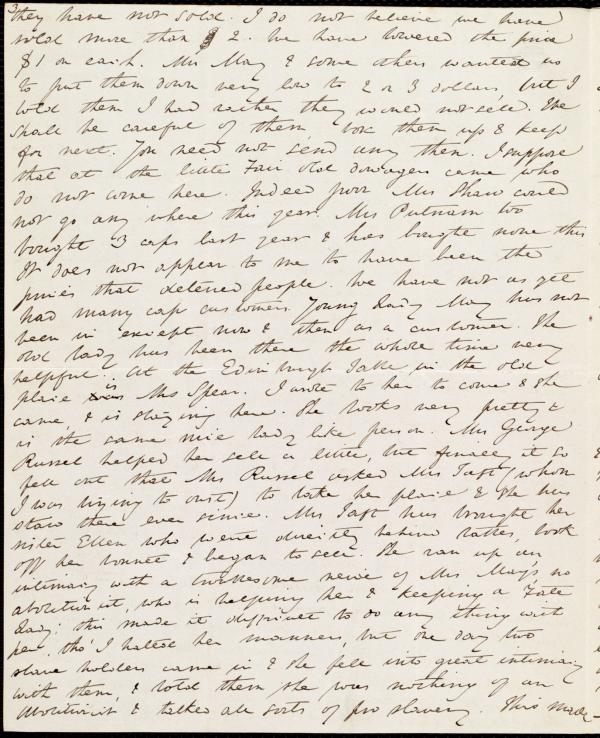 3
they have not sold. I do not believe we have
sold more than 2. We have lowered the price
$1 on each. Mrs May & some others wanted us
to put them down very low to 2 or 3 dollars, but I
told them I had rather they would not sell. We
shall be careful of them, box them up & keep
for next. You need not send any then. I suppose
that at the little Fair old dowagers came who
do not come here. Indeed poor Mrs Shaw could
not go any where this year. Mrs Putnam too
bought 3 caps last year & has bought none this
It does not appear to me to have been the
prices that deterred people. We have not as yet
had many cap customers. Young Lady May has not
been in except now & then as a customer. The
old lady has been there the whole time very
helpful. At the Edinburgh Table, in the old
place is Mrs Spear. I wrote to her to come & she
came, & is staying here. She looks very pretty &
is the same nice lady like person. Mrs George
Russel helped her sell a little, but finally it so
fell out that Mrs Russel asked Mrs Taft (whom
I was trying to oust) to take her place & she has
staid there ever since. Mrs Taft has brought her
sister Ellen who went directly behind tables, took
off her bonnet & began to sell. She ran up an
intimacy with a niece of Mrs May's, no
abolitionist, who is helping her & keeping a
Lady: this made it difficult to do any thing with
her, tho' I hated her manners, but one day two
slave holders came in & she fell into great intimacy
with them, & told them she was nothing of an
Abolitionist & talked all sorts of pro slavery. This made